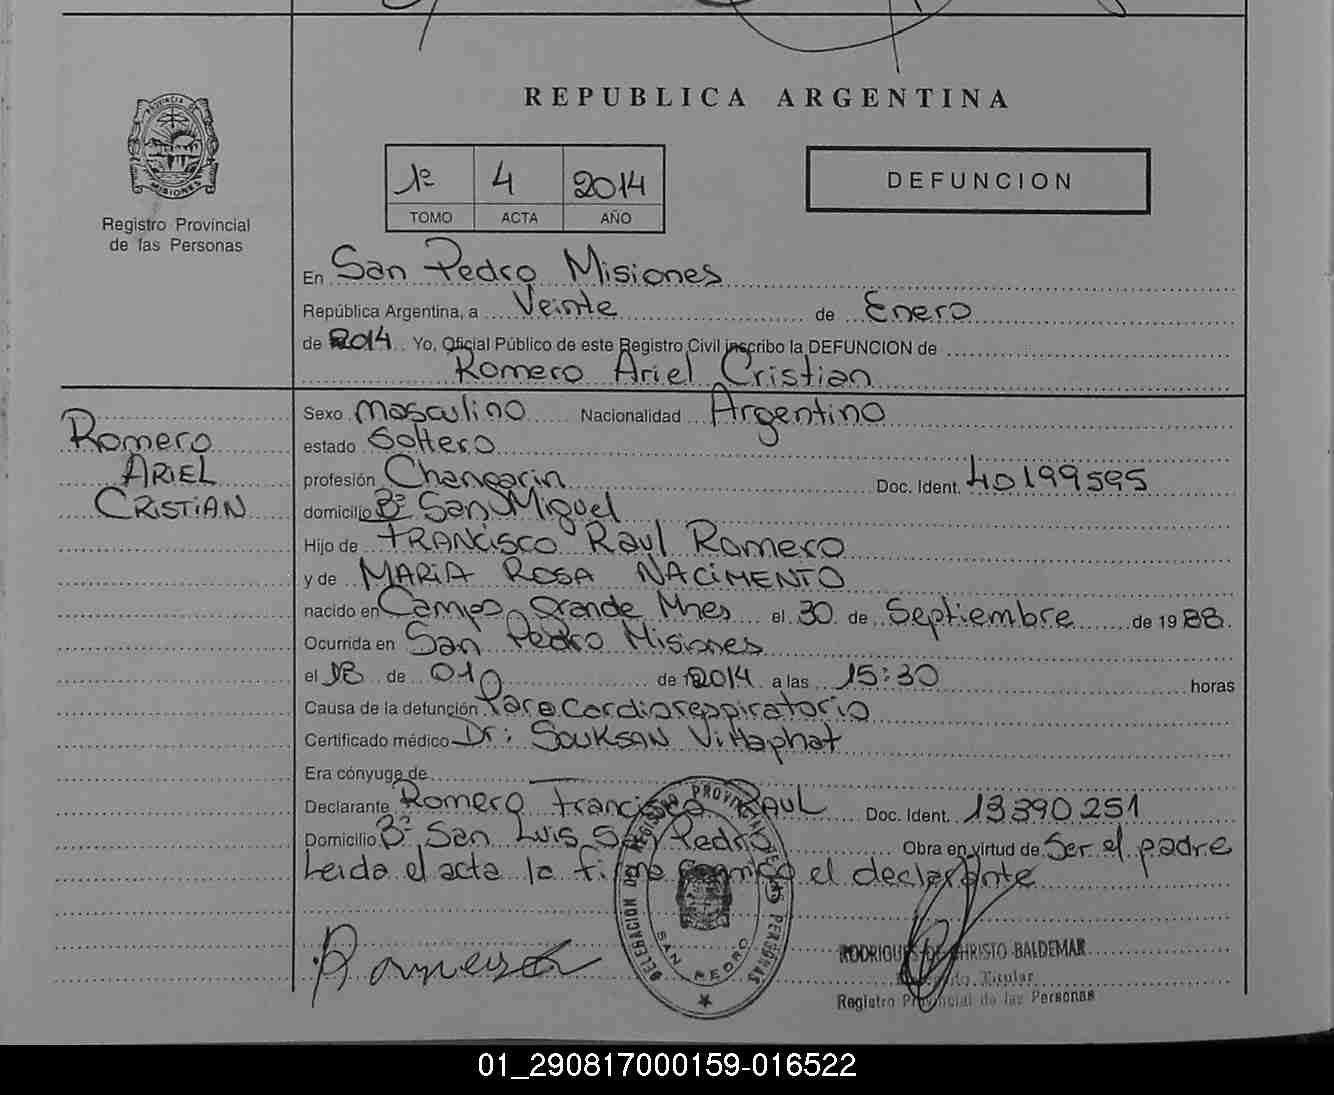 REPUBLICA ARGENTINA
PROVINCIA DE MISIONES
Registro Provincial
de las Personas
1º 4 2014
TOMO ACTA AÑO
DEFUNCION
En San Pedro Misiones
República Argentina, a Veinte de Enero
de 2014 Yo, Oficial Público de este Registro Civil inscribo la DEFUNCION de
Romero Ariel Cristian
Romero
ARIEL
CRISTIAN
Sexo masculino Nacionalidad Argentino
estado Soltero
profesión Changarin Doc. Ident. 40199595
domicilio Bº San Miguel
Hijo de FRANCISCO Raul Romero
y de MARIA ROSA NACIMENTO
nacido en Campo Grande Mnes el 30 de Septiembre de 1988.
Ocurrida en San Pedro Misiones
el 18 de 01 de 2014 a las 15:30 horas
Causa de la defunción Paro Cardiorespiratorio
Certificado médico Dr: SOUKSAN Vittaphat
Era cónyuge de
Declarante Romero Francisco RAUL Doc. Ident. 13390251
Domicilio Bº San Luis San Pedro Obra en virtud de Ser el padre
Leida el acta la firma conmigo el declarante
DELEGACION DEL REGISTRO PROVINCIAL DE LAS PERSONAS
SAN PEDRO
Romero
RODRIGUES DE CHRISTO BALDEMAR
Titular
Registro Provincial de las Personas
01_290817000159-016522